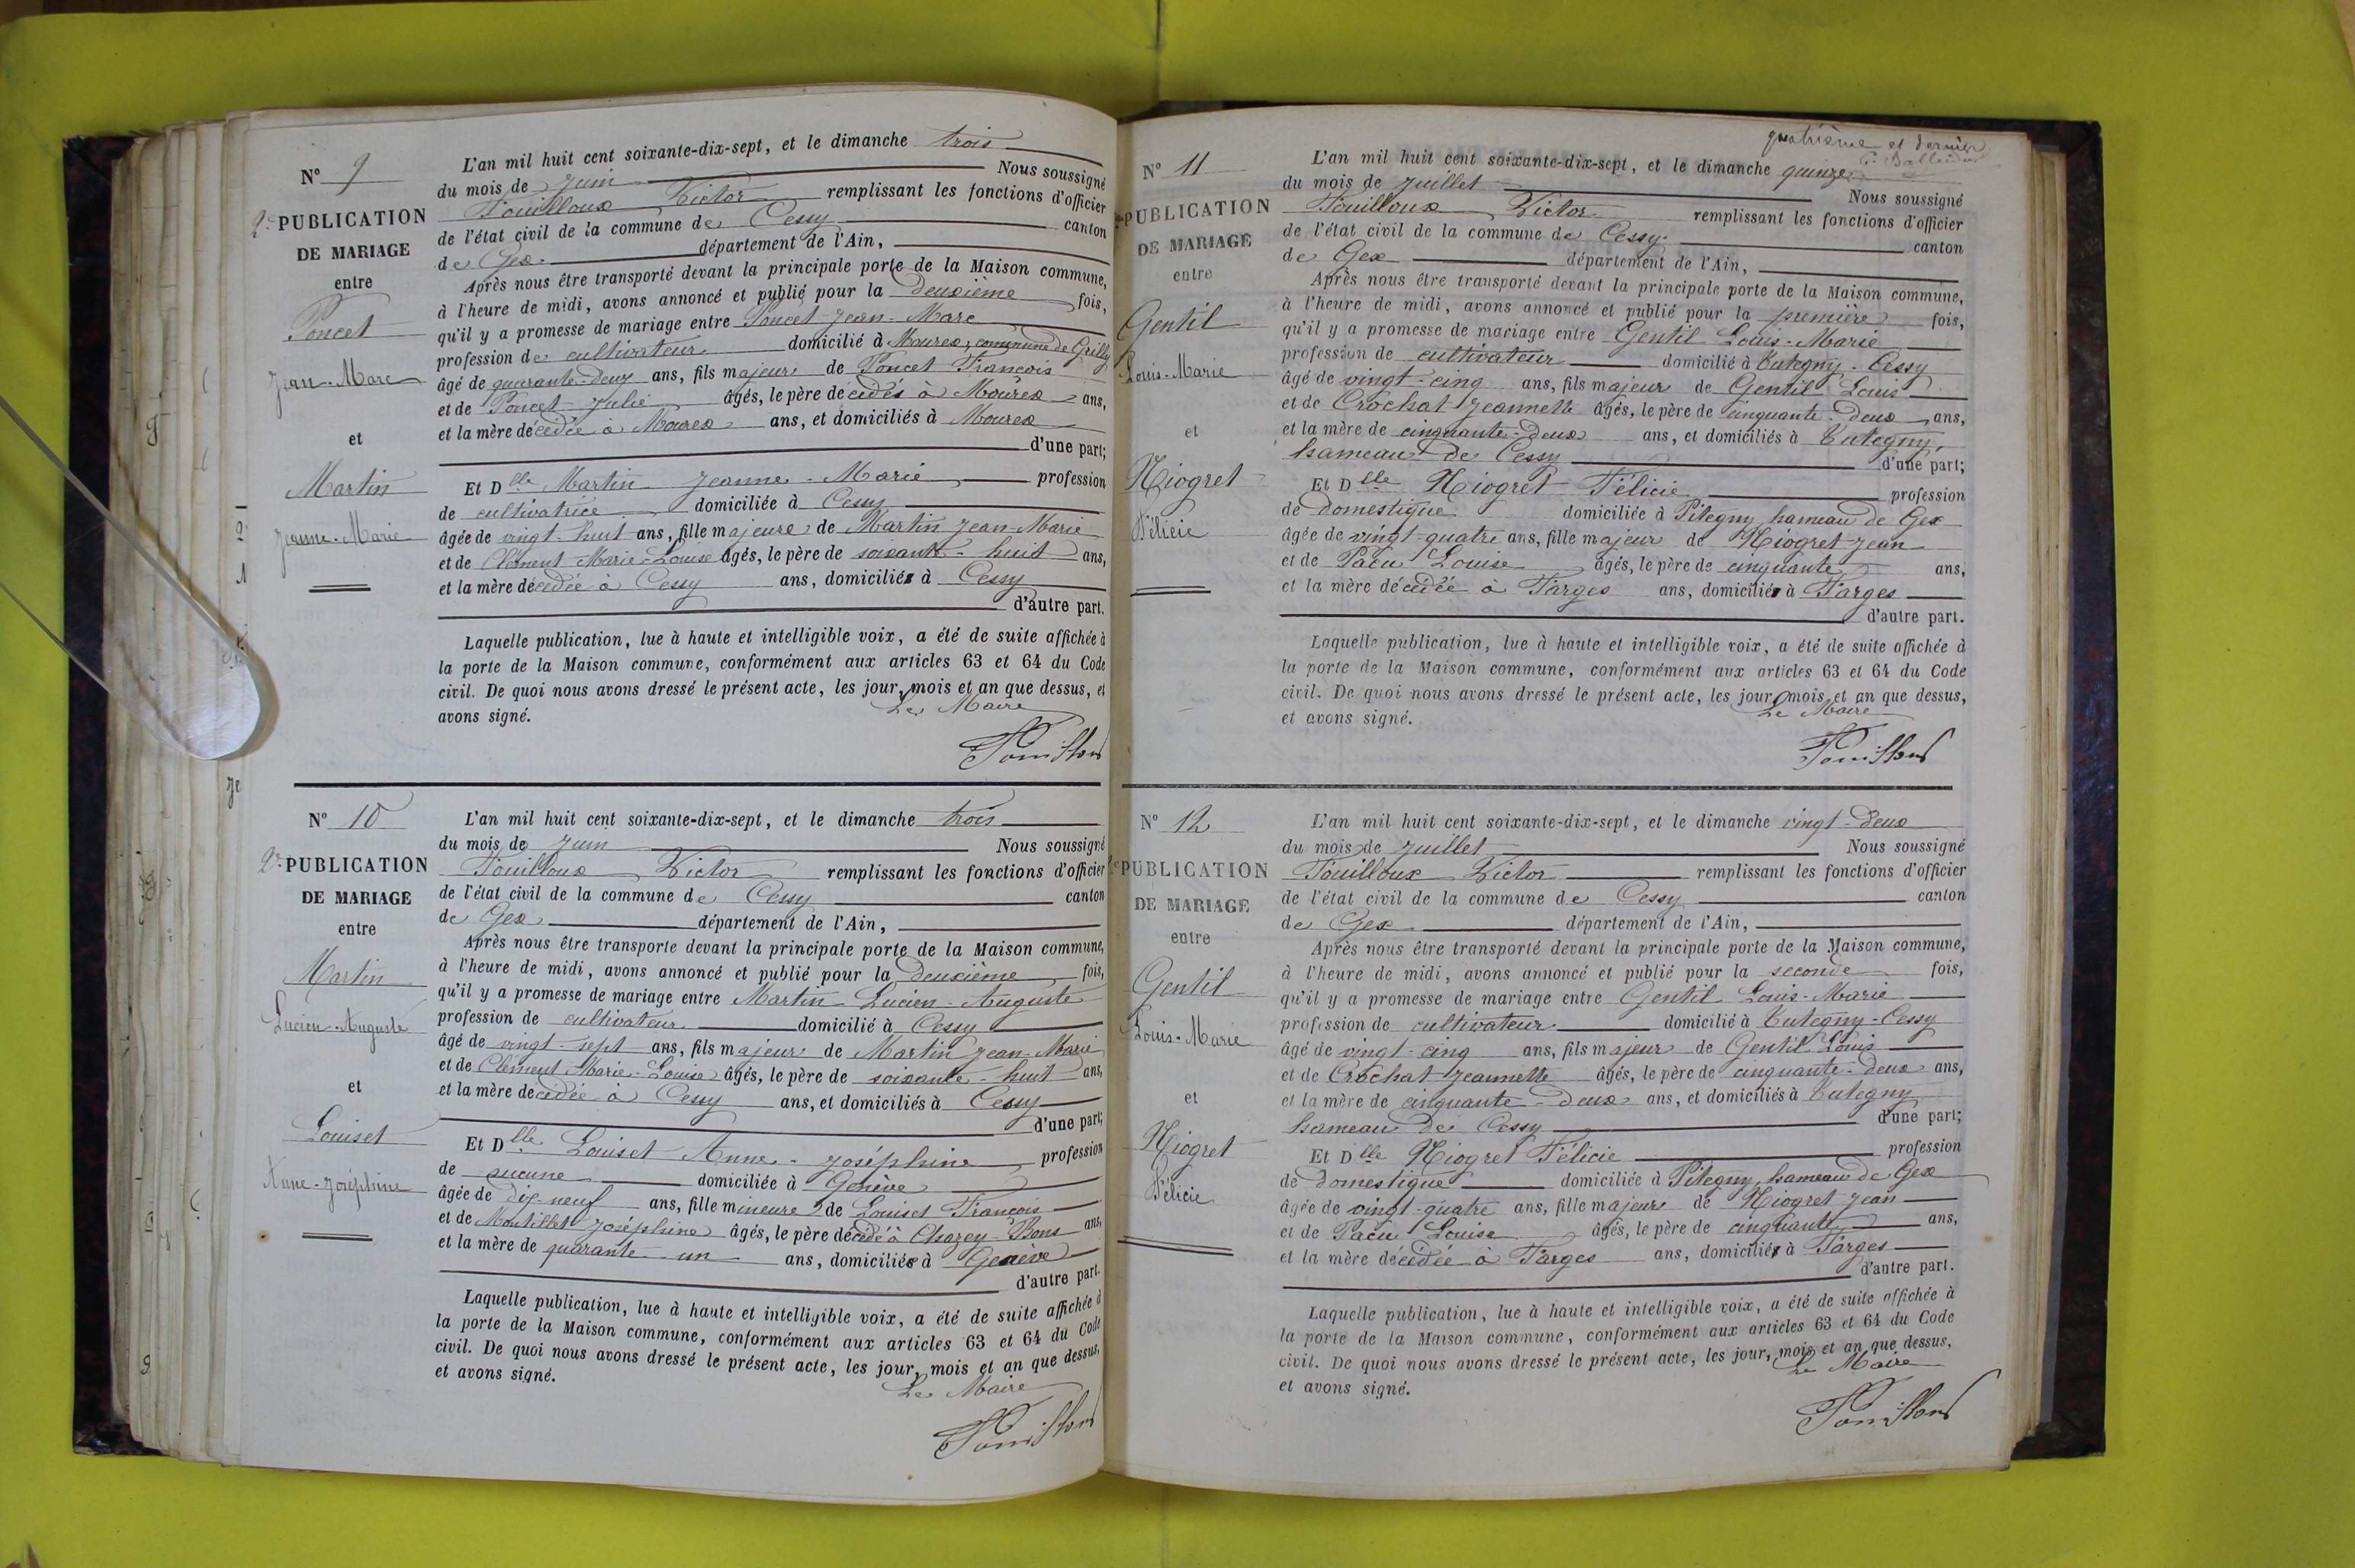 N° 9
2e PUBLICATION
DE MARIAGE
entre
Poncet
Jean-Marc
et
Martin
Jeanne-Marie
L'an mil huit cent soixante-dix-sept, et le dimanche trois
du mois de Juin Nous soussigné
Fouilloux Victor remplissant les fonctions d'officier
de l'état civil de la commune de Cessy canton
de Gex département de l'Ain,
Après nous être transporté devant la principale porte de la Maison commune,
à l'heure de midi, avons annoncé et publié pour la deuxième fois,
qu'il y a promesse de mariage entre Poncet Jean-Marc
profession de cultivateur domicilié à Mourex, commune de Grilly
âgé de quarante-deux ans, fils majeur de Poncet François
et de Poncet Julie âgés, le père décédés à Mourex ans,
et la mère décédée à Mourex ans, et domiciliés à Mourex
d'une part;
Et Dlle Martin Jeanne-Marie profession
de cultivatrice domiciliée à Cessy
âgée de vingt-huit ans, fille majeure de Martin Jean-Marie
et de Clément Marie-Louise âgés, le père de soixante-huit ans,
et la mère décédée à Cessy ans, domiciliés à Cessy
d'autre part.
Laquelle publication, lue à haute et intelligible voix, a été de suite affichée à
la porte de la Maison commune, conformément aux articles 63 et 64 du Code
civil. De quoi nous avons dressé le présent acte, les jour, mois et an que dessus, et
avons signé.
Le Maire
Fouilloux
N° 10
2e PUBLICATION
DE MARIAGE
entre
Martin
Lucien-Auguste
et
Louiset
Anne-Joséphine
L'an mil huit cent soixante-dix-sept, et le dimanche trois
du mois de Juin Nous soussigné
Fouilloux Victor remplissant les fonctions d'officier
de l'état civil de la commune de Cessy canton
de Gex département de l'Ain,
Après nous être transporte devant la principale porte de la Maison commune,
à l'heure de midi, avons annoncé et publié pour la deuxième fois,
qu'il y a promesse de mariage entre Martin Lucien-Auguste
profession de cultivateur domicilié à Cessy
âgé de vingt-sept ans, fils majeur de Martin Jean-Marie
et de Clément Marie-Louise âgés, le père de soixante-huit ans,
et la mère décédée à Cessy ans, et domiciliés à Cessy
d'une part;
Et Dlle Louiset Anne-Joséphine profession
de aucune domiciliée à Genève
âgée de dix-neuf ans, fille mineure de Louiset François
et de Montillet Joséphine âgés, le père décédé à Chazey-Bons ans,
et la mère de quarante-un ans, domiciliés à Genève
d'autre part.
Laquelle publication, lue à haute et intelligible voix, a été de suite affichée à
la porte de la Maison commune, conformément aux articles 63 et 64 du Code
civil. De quoi nous avons dressé le présent acte, les jour, mois et an que dessus,
et avons signé.
Le Maire
Fouilloux
quatrième et dernier
N° 11
PUBLICATION
DE MARIAGE
entre
Gentil
Louis-Marie
et
Niogret
Félicie
L'an mil huit cent soixante-dix-sept, et le dimanche quinze
du mois de Juillet Nous soussigné
Fouilloux Victor remplissant les fonctions d'officier
de l'état civil de la commune de Cessy canton
de Gex département de l'Ain,
Après nous être transporté devant la principale porte de la Maison commune,
à l'heure de midi, avons annoncé et publié pour la première fois,
qu'il y a promesse de mariage entre Gentil Louis-Marie
profession de cultivateur domicilié à Tutegny-Cessy
âgé de vingt-cinq ans, fils majeur de Gentil Louis
et de Crochat Jeannette âgés, le père de cinquante-deux ans,
et la mère de cinquante-deux ans, et domiciliés à Tutegny,
hameau de Cessy d'une part;
Et Dlle Niogret Félicie profession
de domestique domiciliée à Pitegny hameau de Gex
âgée de vingt-quatre ans, fille majeur de Niogret Jean
et de Pacu Louise âgés, le père de cinquante ans,
et la mère décédée à Farges ans, domiciliés à Farges
d'autre part.
Laquelle publication, lue à haute et intelligible voix, a été de suite affichée à
la porte de la Maison commune, conformément aux articles 63 et 64 du Code
civil. De quoi nous avons dressé le présent acte, les jour, mois et an que dessus,
et avons signé.
Le Maire
Fouilloux
N° 12
2e PUBLICATION
DE MARIAGE
entre
Gentil
Louis-Marie
et
Niogret
Félicie
L'an mil huit cent soixante-dix-sept, et le dimanche vingt-deux
du mois de Juillet Nous soussigné
Fouilloux Victor remplissant les fonctions d'officier
de l'état civil de la commune de Cessy canton
de Gex département de l'Ain,
Après nous être transporté devant la principale porte de la Maison commune,
à l'heure de midi, avons annoncé et publié pour la seconde fois,
qu'il y a promesse de mariage entre Gentil Louis-Marie
profession de cultivateur domicilié à Tutegny-Cessy
âgé de vingt-cinq ans, fils majeur de Gentil Louis
et de Crochat Jeannette âgés, le père de cinquante-deux ans,
et la mère de cinquante-deux ans, et domiciliés à Tutegny
hameau de Cessy d'une part;
Et Dlle Niogret Félicie profession
de domestique domiciliée à Pitegny hameau de Gex
âgée de vingt-quatre ans, fille majeure de Niogret Jean
et de Pacu Louise âgés, le père de cinquante ans,
et la mère décédée à Farges ans, domiciliés à Farges
d'autre part.
Laquelle publication, lue à haute et intelligible voix, a été de suite affichée à
la porte de la Maison commune, conformément aux articles 63 et 64 du Code
civil. De quoi nous avons dressé le présent acte, les jour, mois et an que dessus,
et avons signé.
Le Maire
Fouilloux